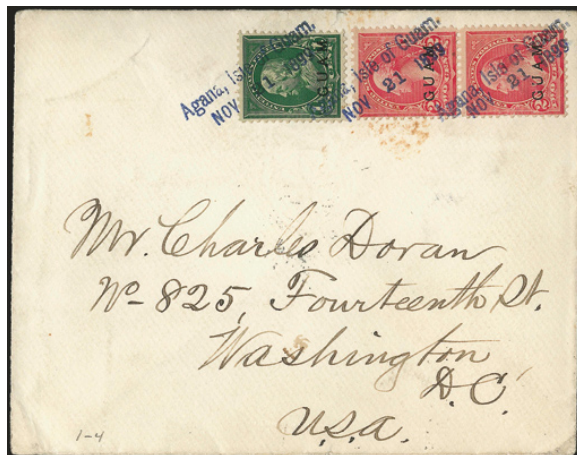 Agana, Isle of Guam.
NOV 21 1899
GUAM
Agana, Isle of Guam.
NOV 21 1899
GUAM
Agana, Isle of Guam.
NOV 21 1899
GUAM
Mr. Charles Doran
No- 825, Fourteenth St.
Washington
D.C.
U.S.A.
1-4